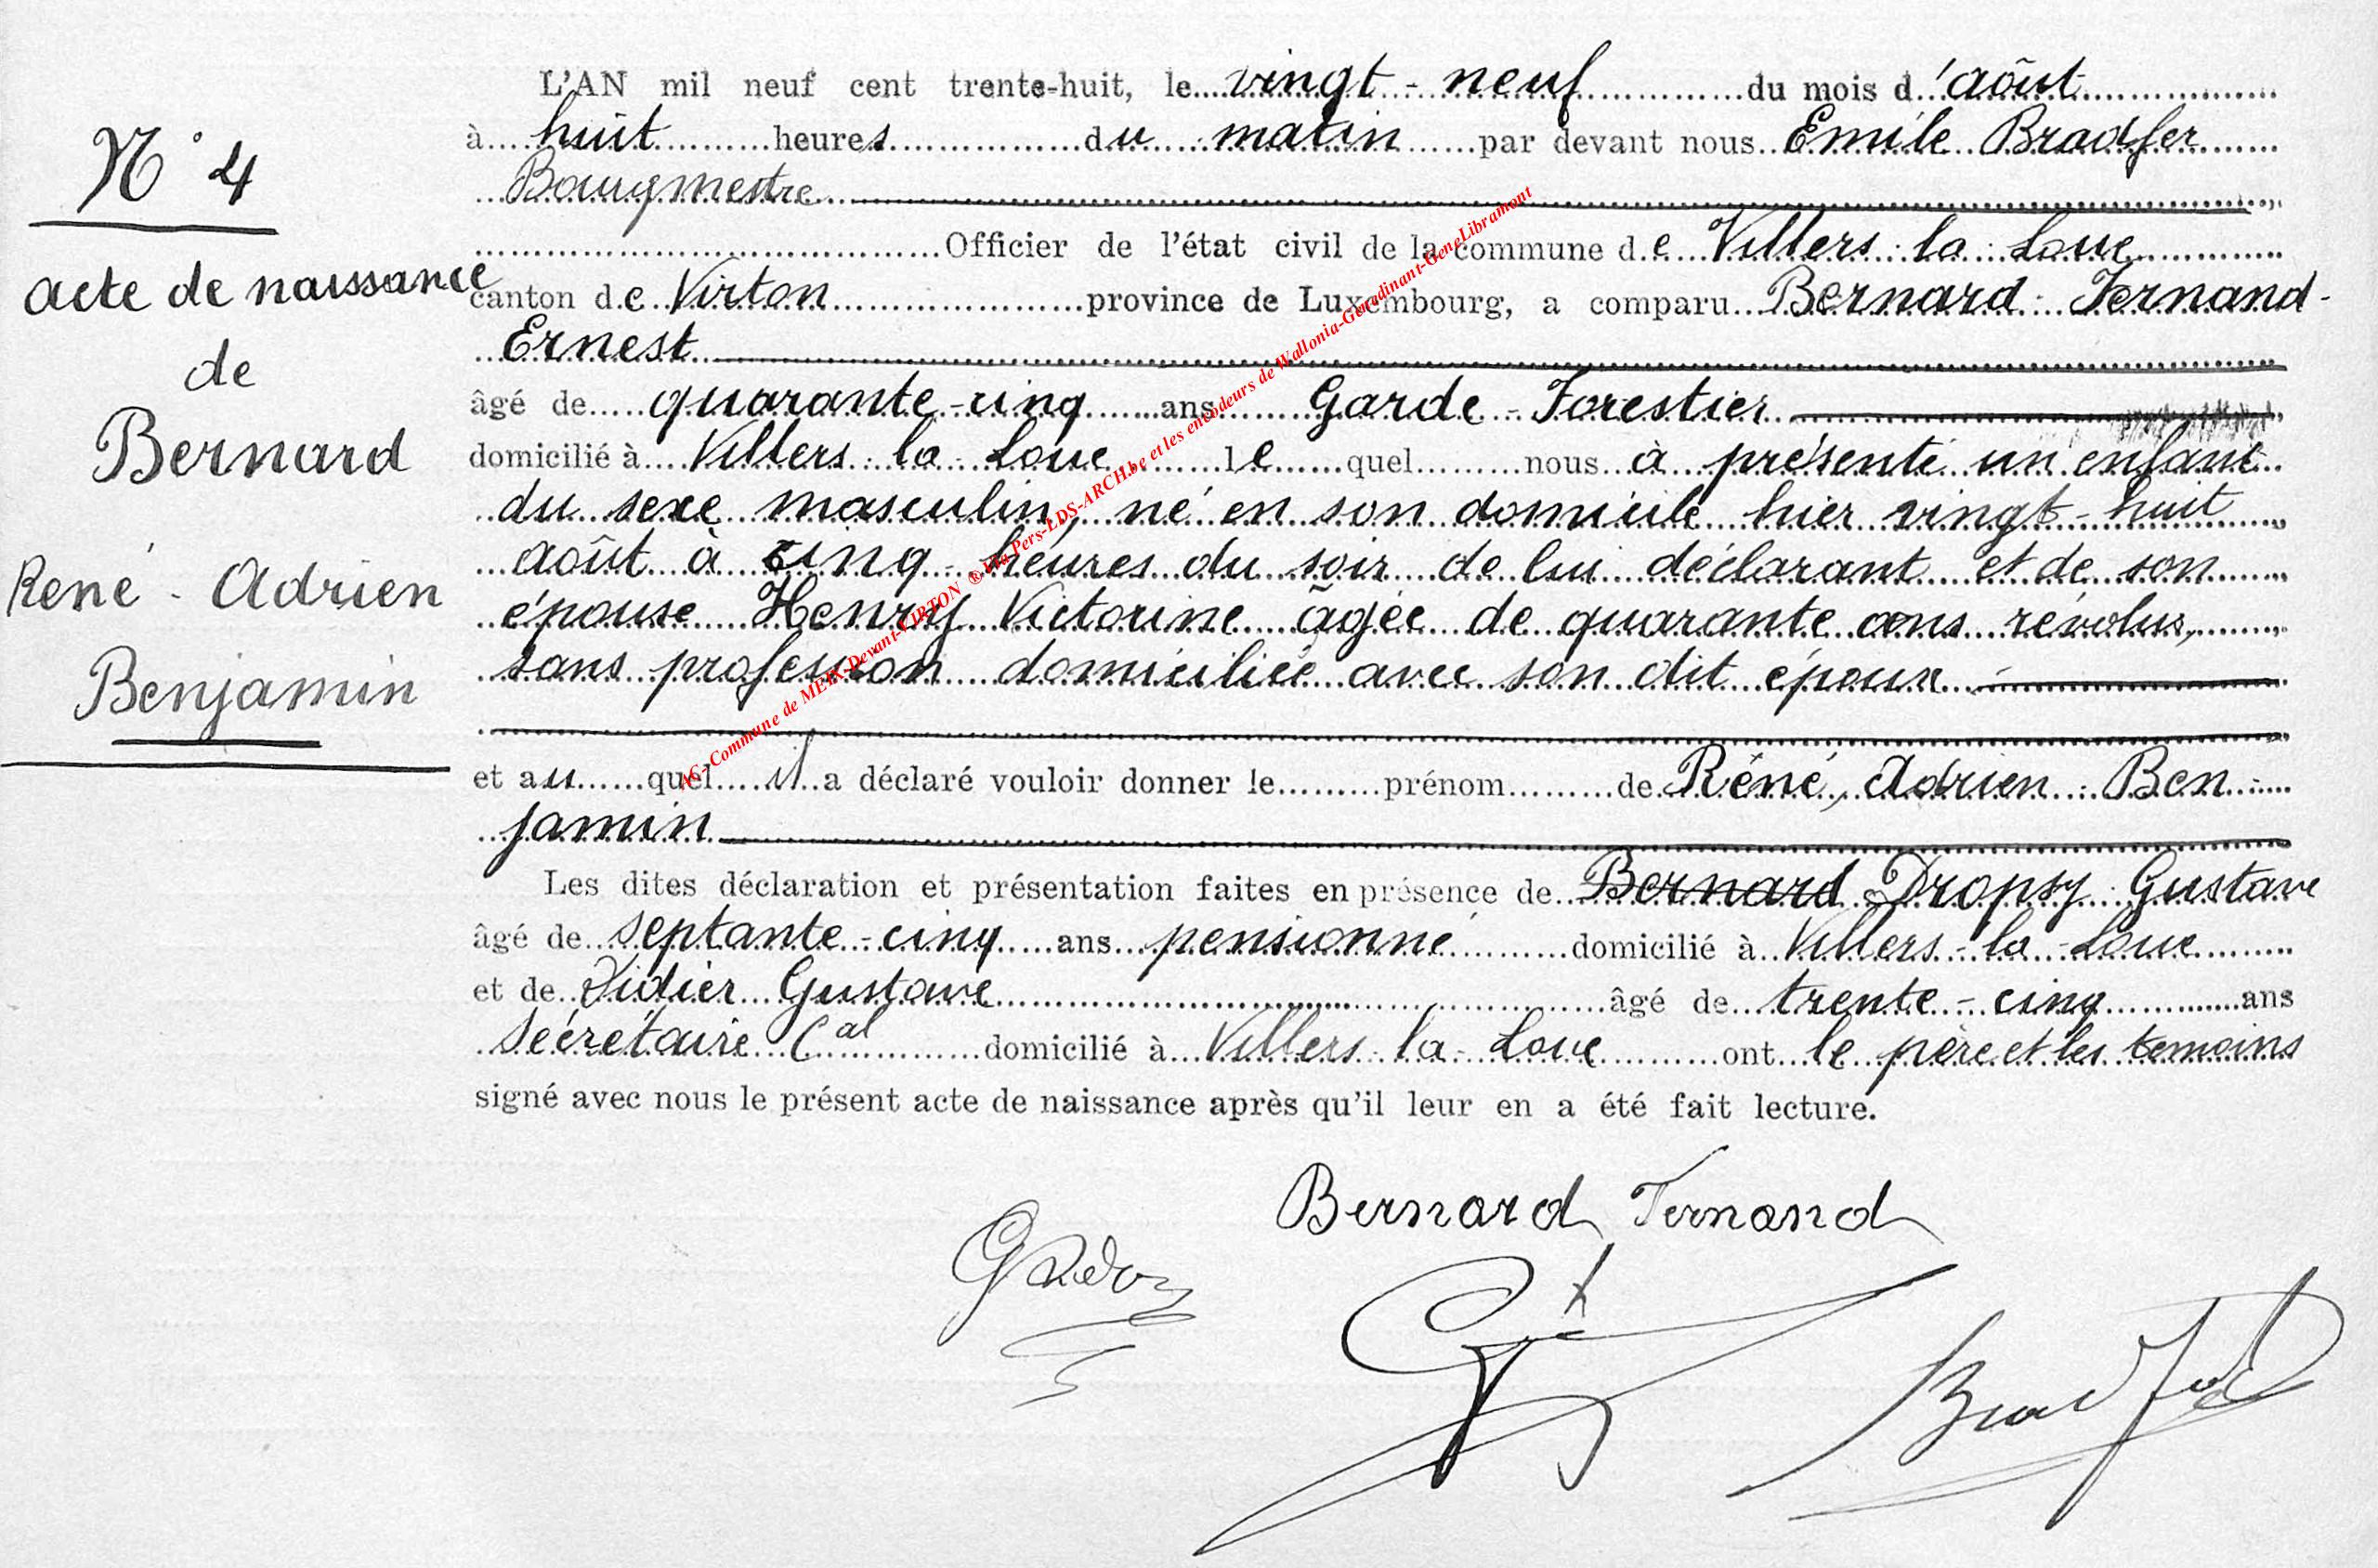 N° 4
acte de naissance
de
Bernard
René - Adrien
Benjamin
L'AN mil neuf cent trente-huit, le vingt-neuf du mois d'août
à huit heures du matin par devant nous Emile Bradfer
Bourgmestre
Officier de l'état civil de la commune de Villers-la-Loue
canton de Virton province de Luxembourg, a comparu Bernard Fernand-
Ernest
âgé de quarante-cinq ans Garde-Forestier
domicilié à Villers-la-Loue lequel nous à présenté un enfant
du sexe masculin, né en son domicile hier vingt-huit
août à cinq heures du soir de lui déclarant et de son
épouse Henry Victorine âgée de quarante ans révolus,
sans profession domiciliée avec son dit époux
et auquel il a déclaré vouloir donner le prénom de Réné, Adrien-Ben-
jamin
Les dites déclaration et présentation faites en présence de Bernard Dropsy Gustave
âgé de septante-cinq ans pensionné domicilié à Villers-la-Loue
et de Didier Gustave âgé de trente-cinq ans
Sécrétaire Cal domicilié à Villers-la-Loue ont le père et les temoins
signé avec nous le présent acte de naissance après qu'il leur en a été fait lecture.
Bernard Fernand
Bradfer
AC- Commune de MEIX-Devant-VIRTON ® Via Pers-LDS-ARCH.be et les encodeurs de Wallonia-Geradinant-GeneLibramont